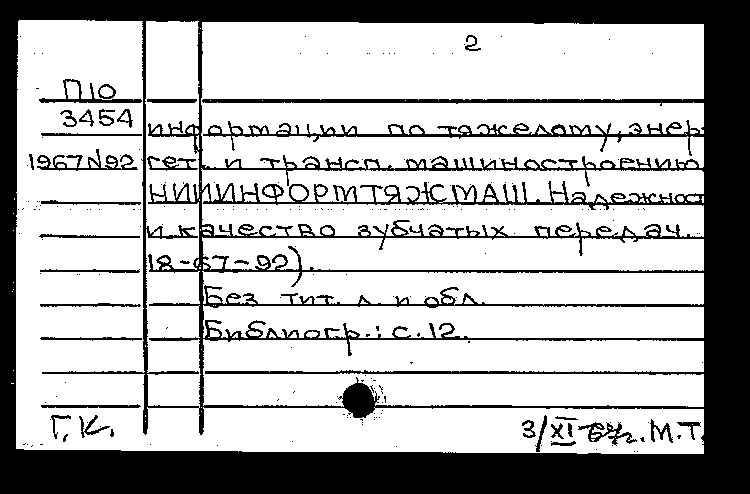 2
П10
3454
информации по тяжелому, энер
1967N92 гет. и трансп. машиностроению.
НИИИНФОРМТЯЖМАШ. Надежност
и качество зубчатых передач.
18-67-92).
Без тит. л. и обл.
Библиогр.: с. 12.
Г.К.
3/XI 67г. М.Т.